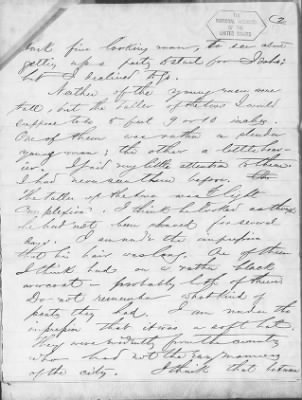 THE
NATIONAL ARCHIVES
OF THE
UNITED STATES
fine looking man, to see about
getting up a party to start for
but I declined to go.
Neither of the young men were
tall, but the taller of the two I would
suppose to be 5 feet 9 or 10 inches.
One of them was rather a slender
young man; the other a little heav-
ier. I paid very little attention to them
I had never seen them before.
The taller of the two was of light
complexion. I think he looked as though
he had not been shaved for several
days. I am under the impression
that his hair was long. One of them
I think had on a rather black
overcoat — probably both of them
Do not remember what kind of
pants they had. I am under the
impression that it was a soft hat.
They were evidently from the country
who had not the easy manners
of the city. I think that between